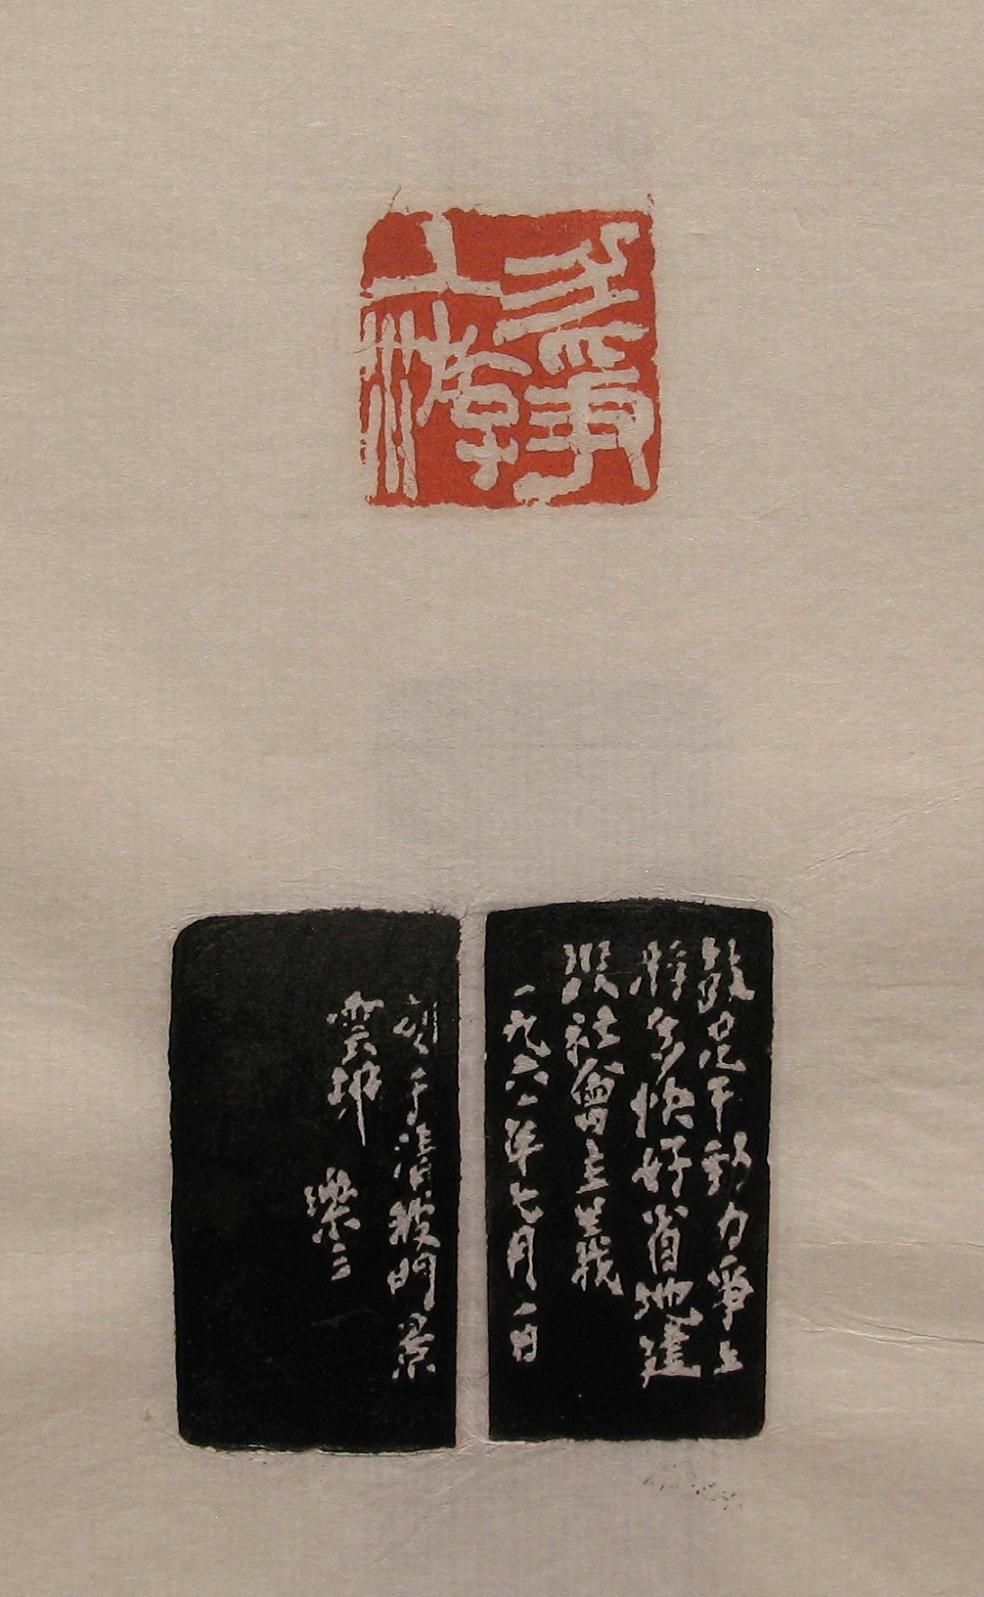 力爭
上游
鼓足干勁力爭上
游多快好省地建
設社會主義
一九六一年七月一日
刻于清波門景
雲邨
樂三